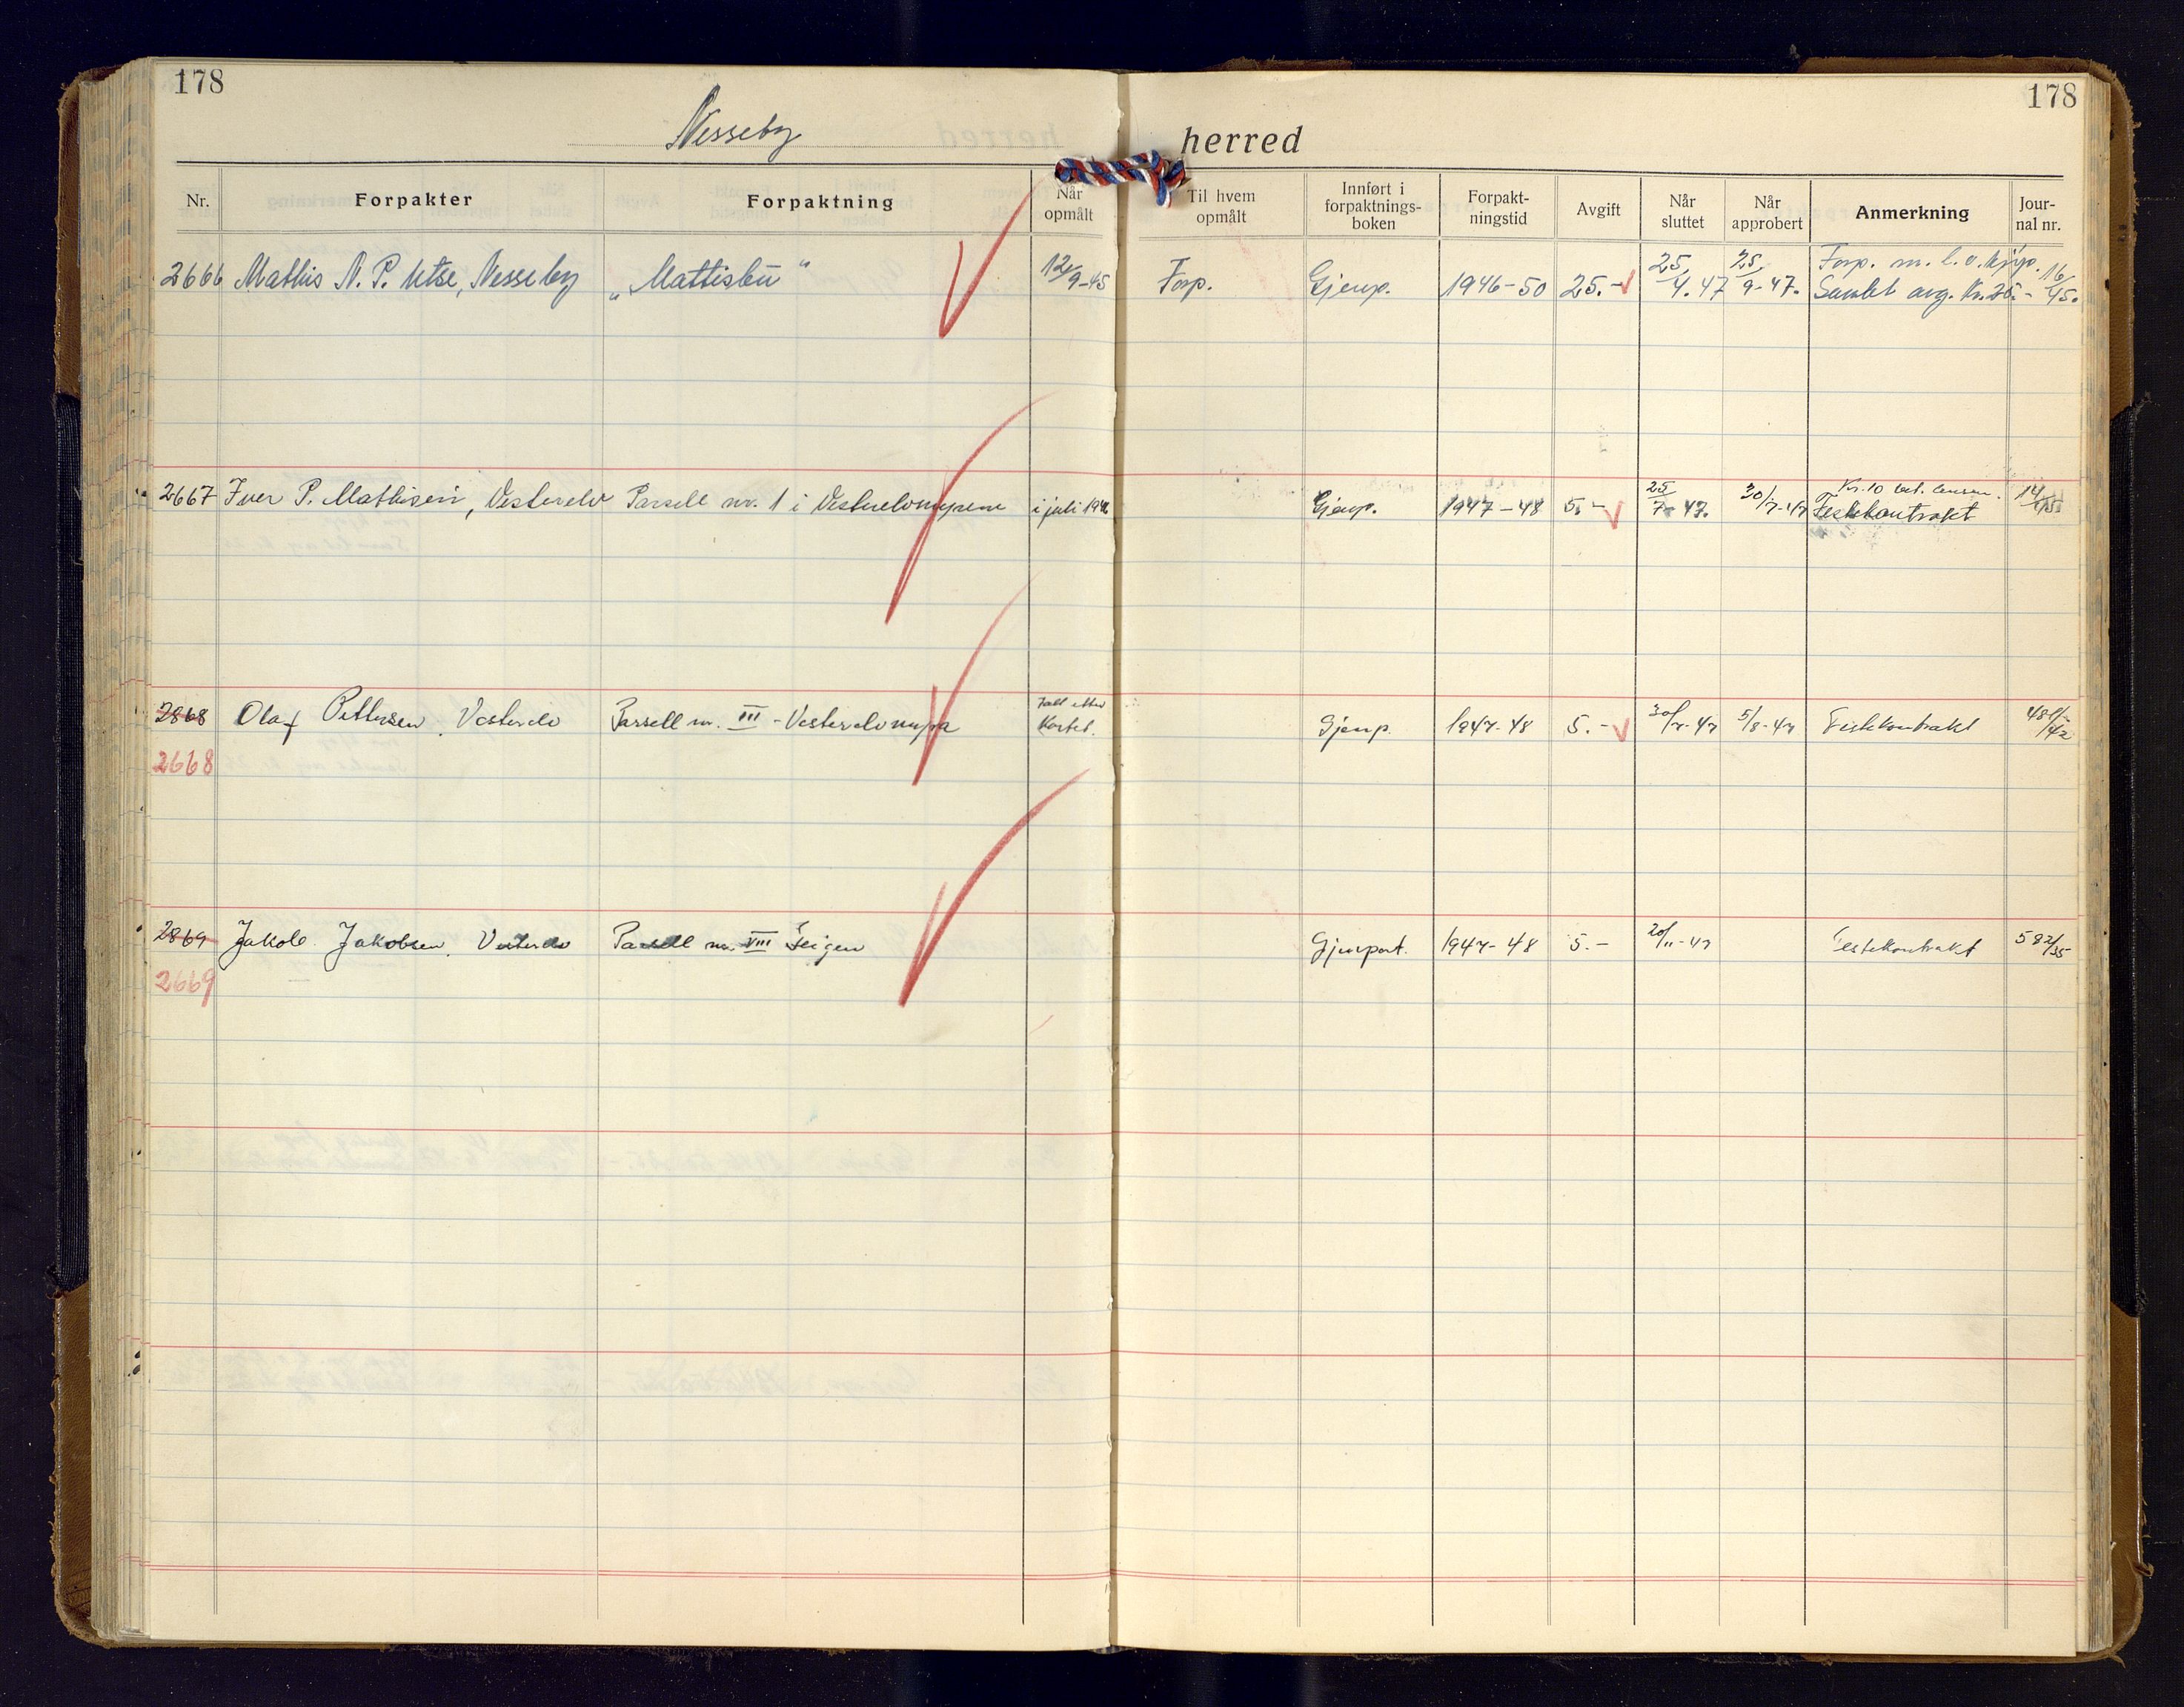 178
178
Nesseby herred
Nr. Forpakter Forpaktning Når opmålt Til hvem opmålt Innført i forpaktnings-boken Forpakt-ningstid Avgift Når sluttet Når approbert Anmerkning Jour-nal nr.
2666 Mathis N. P. Utse, Nesseby „Mattisbu“ 12/9-45 Forp. Gjenp. 1946-50 25.- 25/4.47 25/9-47. Forp. m. l. o. kjøp. 16/45.
Samlet avg. Kr. 25.-
Kr. 10 bet.
2667 Iver P. Mathisen, Vesterelv Parsell nr. 1 i Vesterelvnypene i juli 1942 Gjenp. 1947-48 5.- 25/7-47. 30/7-47 Festekontrakt 14/45
2868 Olaf Pettersen, Vesterelv Parsell nr. III - Vesterelvnypa Tatt etter Kartet. Gjenp. 1947-48 5.- 30/7-47 5/8-47 Festekontrakt
2668
2869 Jakob Jakobsen, Vesterelv Parsell nr. VIII Teigen Gjenpart. 1947-48 5.- 20/11-47 Festekontrakt 582/35
2669